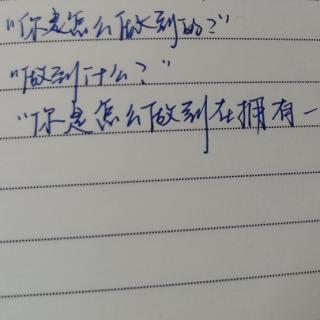 "你是怎么做到的?"
"做到什么?"
"你是怎么做到在拥有一